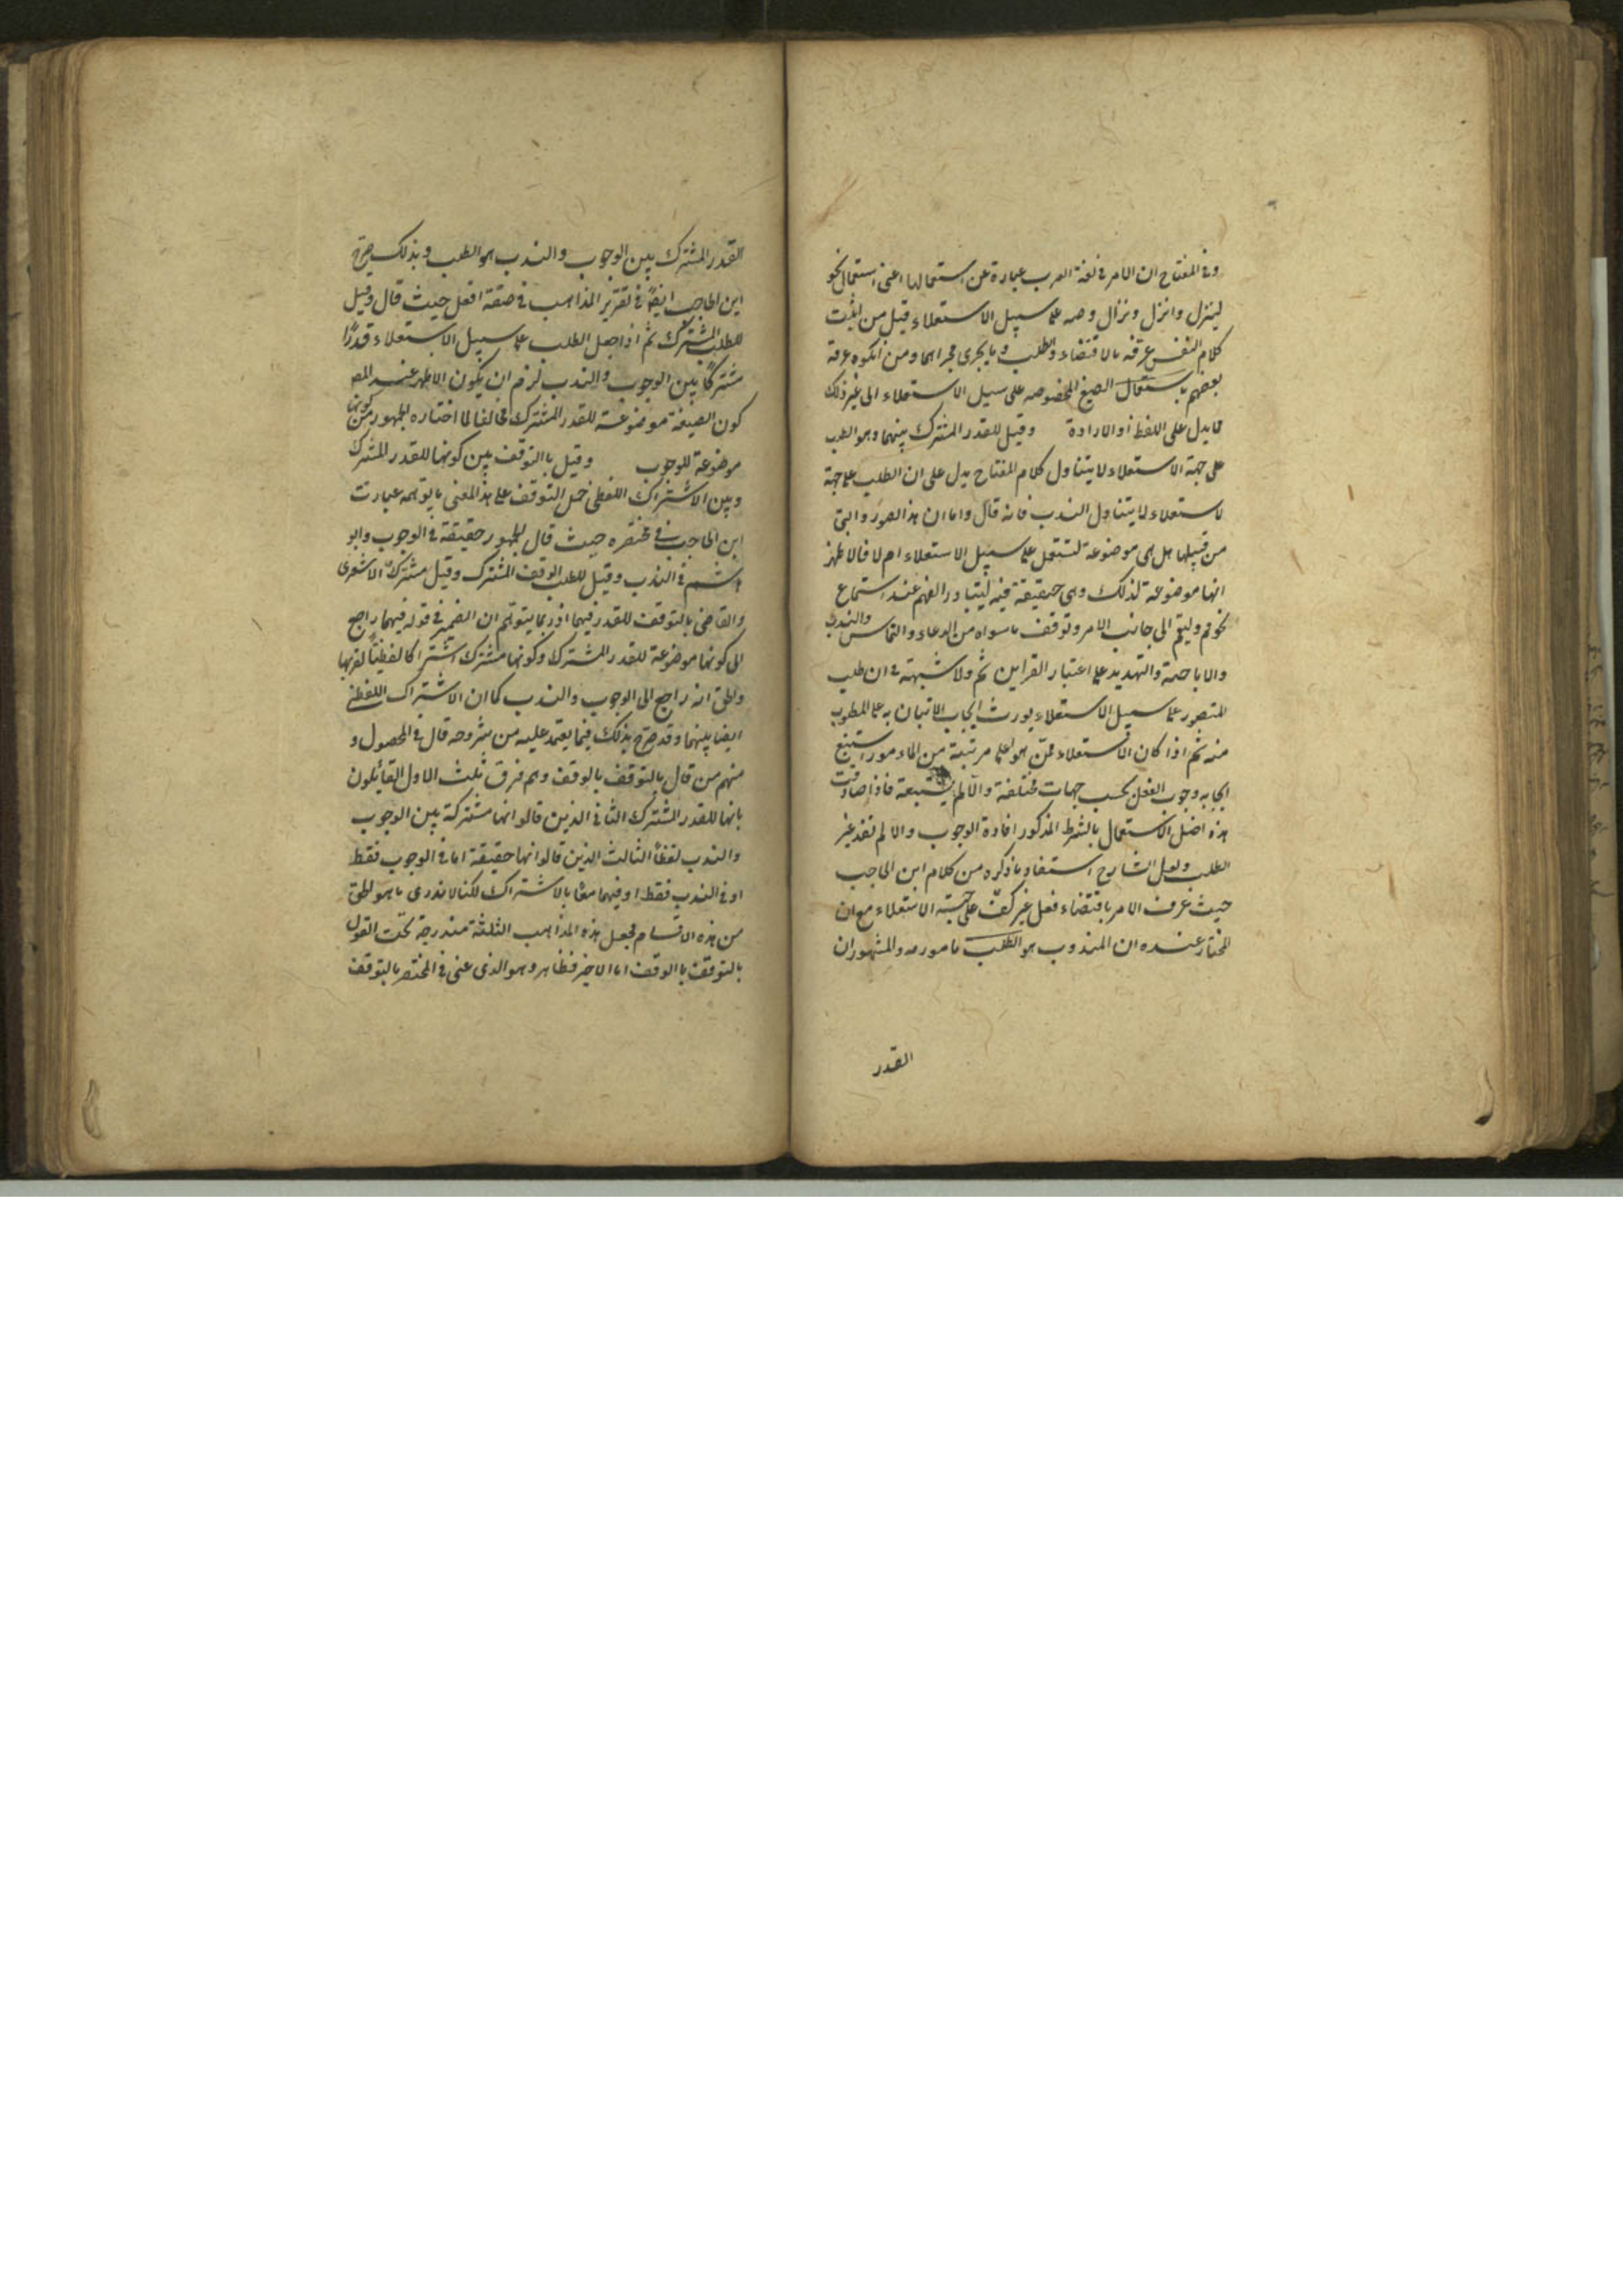 وفي المفتاح ان الامر في لغة العرب عبارة عن استعمالها اعني استعمال نحو
لينزل وانزل ونزال وصه على سبيل الاستعلاء قيل من اثبت
كلام النفس عرفه بالاقتضاء والطلب وما يجري مجراهما ومن انكره عرفه
بعضهم باستعمال الصيغ المخصوصه على سبيل الاستعلاء الى غير ذلك
مما يدل على اللفظ أو الارادة وقيل للقدر المشترك بينهما وهو الطلب
على جهة الاستعلاء لا يتناول كلام المفتاح يدل على ان الطلب على جهة
لاستعلاء لا يتناول الندب فانه قال واما ان هذا الصور والتي
من قبيلها هل هي موضوعة لتستعمل على سبيل الاستعلاء ام لا فالاظهر
انها موضوعة لذلك وهي حقيقة فيه ليتبادر الفهم عند استماع
نحو قم وليقم الى جانب الامر وتوقف ما سواه من الدعاء والتماس والندب
والاباحة والتهديد على اعتبار القراين ثم ولا شبهة في ان طلب
المتصور على سبيل الاستعلاء يورث ايجاب الاتيان به على المطلوب
منه ثم اذا كان الاستعلاء ممن هو اعلى مرتبة من الماءمور استتبع
ايجابه وجوب الفعل بحسب جهات مختلفة والا لم يستتبعه فاذا صادفت
هذه اصل الاستعمال بالشرط المذكور افادة الوجوب والا لم تفد غير
الطلب ولعل الشارح استفاد ما ذكره من كلام ابن الحاجب
حيث عرف الامر باقتضاء فعل غير كف على جهة الاستعلاء مع ان
المختار عنده ان المندوب هو الطلب مامور به والمشهور ان
القدر
القدر المشترك بين الوجوب والندب هو الطلب وبذلك صرح
ابن الحاجب ايضاً في تقرير المذاهب في صيغة افعل حيث قال وقيل
للطلب المشترك ثم اذا جعل الطلب على سبيل الاستعلاء قدرًا
مشتركاً بين الوجوب والندب لزم ان يكون الاظهر عند المص
كون الصيغة موضوعة للقدر المشترك مخالفا لما اختاره الجمهور من كونها
موضوعة للوجوب وقيل باالتوقف بين كونها للقدر المشترك
وبين الاشتراك اللفظي حمل التوقف على هذا المعنى ما يوهمه عبارت
ابن الحاجب في مختصره حيث قال الجمهور حقيقة في الوجوب وابو
هاشم في الندب وقيل للطلب الوقف المشترك وقيل مشترك الاشعرى
والقاضي بالتوقف للقدر فيهما اذ ربما يتوهم ان الضمير في قوله فيهما راجع
الى كونها موضوعة للقدر المشترك وكونها مشترك اشتراكا لفظيا لقربها
والحق انه راجع الى الوجوب والندب كما ان الاشتراك اللفظي
ايضا بينهما وقد صرح بذلك فيما يعتمد عليه من شروحه قال في المحصول و
منهم من قال بالتوقف بالوقف وهم فرق ثلث الاول القائلون
بانها للقدر المشترك الثاني الذين قالوا انها مشتركة بين الوجوب
والندب لفظاً الثالث الذين قالوا انها حقيقة اما في الوجوب فقط
او في الندب فقط او فيهما معًا بالاشتراك لكنا لا ندرى ما هو الحق
من هذه الاقسام فجعل هذه المذاهب الثلثة مندرجة تحت القول
بالتوقف باالوقف اما الاخير فظاهر وهو الذى عنى في المختصر بالتوقف